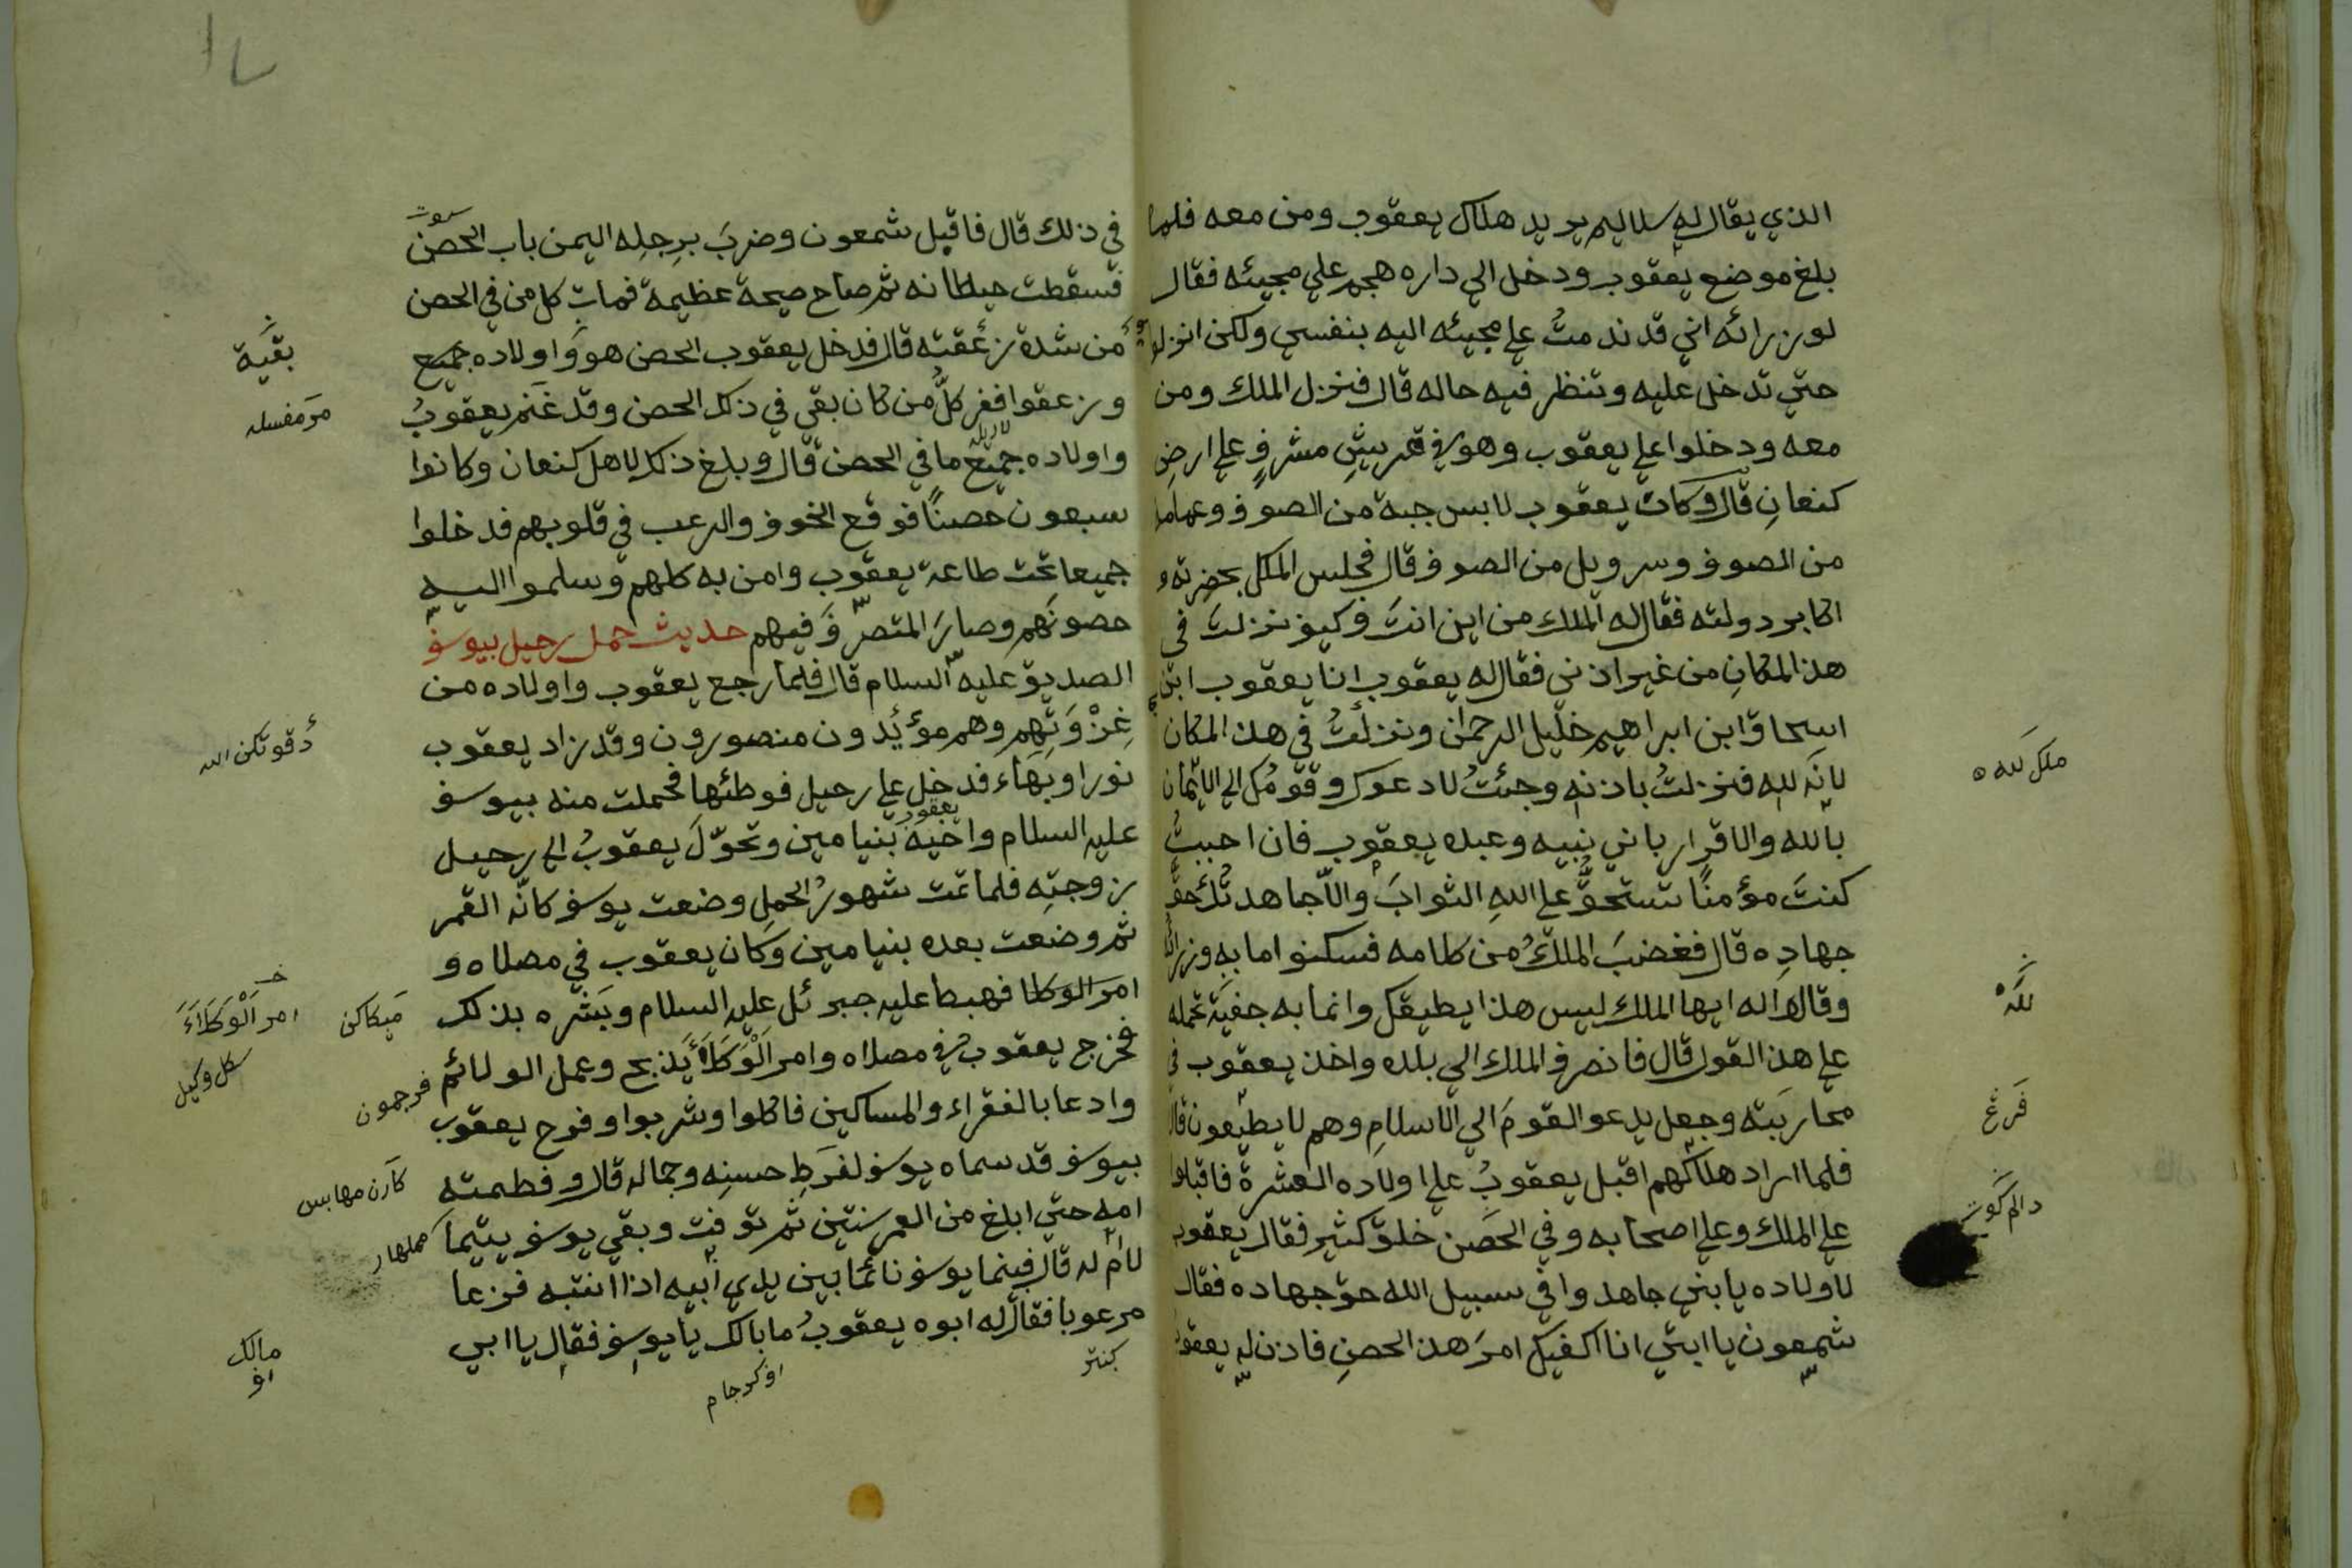 الذي يقال له سلاليم يريد هلاك يعقوب ومن معه فلما
بلغ موضع يعقوب ودخل الي داره هجم علي مجيئه فقال
لوزرائه اني قد ندمت علي مجيئه اليه بنفسي ولكن انزلوا
حتي تدخل عليه وتنظر فيه حاله قال فنزل الملك ومن
معه ودخلوا علي يعقوب وهو في مشرف علي ارض
كنعان قال وكان يعقوب لابس جبة من الصوف
من الصوف وسرويل من الصوف قال فجلس الملك بحضرته و
اكابر دولته فقال له الملك من اين انت وكيف نزلت في
هذا المكان من غير اذني فقال له يعقوب انا يعقوب ابن
اسحاق ابن ابراهيم خليل الرحمن ونزلت في هذ المكان
لانه لله فنزلت باذنه وجئت لادعوك وقومك الي الايمان
بالله والاقرار باني نبيه وعبده يعقوب فان احببت
كنت مؤمنا تستحق علي الله الثواب والا جاهدتك حق
جهاده قال فغضب الملك من كلامه فسكنوا مابه وزرائه
وقالوا له ايها الملك ليس هذا يطيقك وانما به تحمله
علي هذ القول قال فانصرف الملك الي بلده واخذ يعقوب في
محاربته وجعل يدعو القوم الي الاسلام وهم لا يطيعون قال
فلما اراد هلاكهم اقبل يعقوب علي اولاده العشرة فاقبلوا
علي الملك وعلي اصحابه وفي الحصن خلق كثير فقال يعقوب
لاولاده يابني جاهدوا في سبيل الله حق جهاده فقال
شمعون يا ابتي انا اكفيك امر هذ الحصن فاذن له يعقوب
ملك لله
لله
فرغ
دالم كوت
في ذلك قال فاقبل شمعون وضرب برجله اليمن باب الحصن
فسقطت حيطانه ثم صاح صيحة عظيمة فمات كل من في الحصن
من شدة زعقته قال فدخل يعقوب الحصن هو واولاده جميع
وزعقوا ففر كل من كان بقي في ذلك الحصن وقد غنم يعقوب
واولاده جميع ما في الحصن قال وبلغ ذلك لاهل كنعان وكانوا
سبعون حصنا فوقع الخوف والرعب في قلوبهم فدخلوا
جميعا تحت طاعة يعقوب وامن به كلهم وسلموا اليه
حصونهم وصار المتصرف فيهم حديث حمل رحيل بيوسف
الصديق عليه السلام قال فلما رجع يعقوب واولاده من
غزوتهم وهم مؤيدون منصورون وقد زاد يعقوب
نورا وبهاء فدخل علي رحيل فوطئها فحملت منه بيوسف
عليه السلام واخيه بنيامين وتحول يعقوب الي رحيل
زوجته فلما تمت شهور الحمل وضعت يوسف كانه القمر
ثم وضعت بعده بنيامين وكان يعقوب في مصلاه و
امر الوكلا فهبط عليه جبرئل عليه السلام وبشره بذلك
فخرج يعقوب في مصلاه وامر الوكلاء يذبح وعمل الولائم
وادعا بالفقراء والمساكين فاكلوا وشربوا وفرح يعقوب
بيوسف قد سماه يوسف لفرط حسنه وجماله قال وفطمته
امه حتي ابلغ من العمر سنتين ثم توفت وبقي يوسف يتيما
لام له قال فبينما يوسف نائما بين يدي ابيه اذا انتبه فزعا
مرعوبا فقال له ابوه يعقوب ما بالك يا يوسف فقال يا ابي
بقية
دقوتكن الله
امر الوكلاء
سكل وكيل